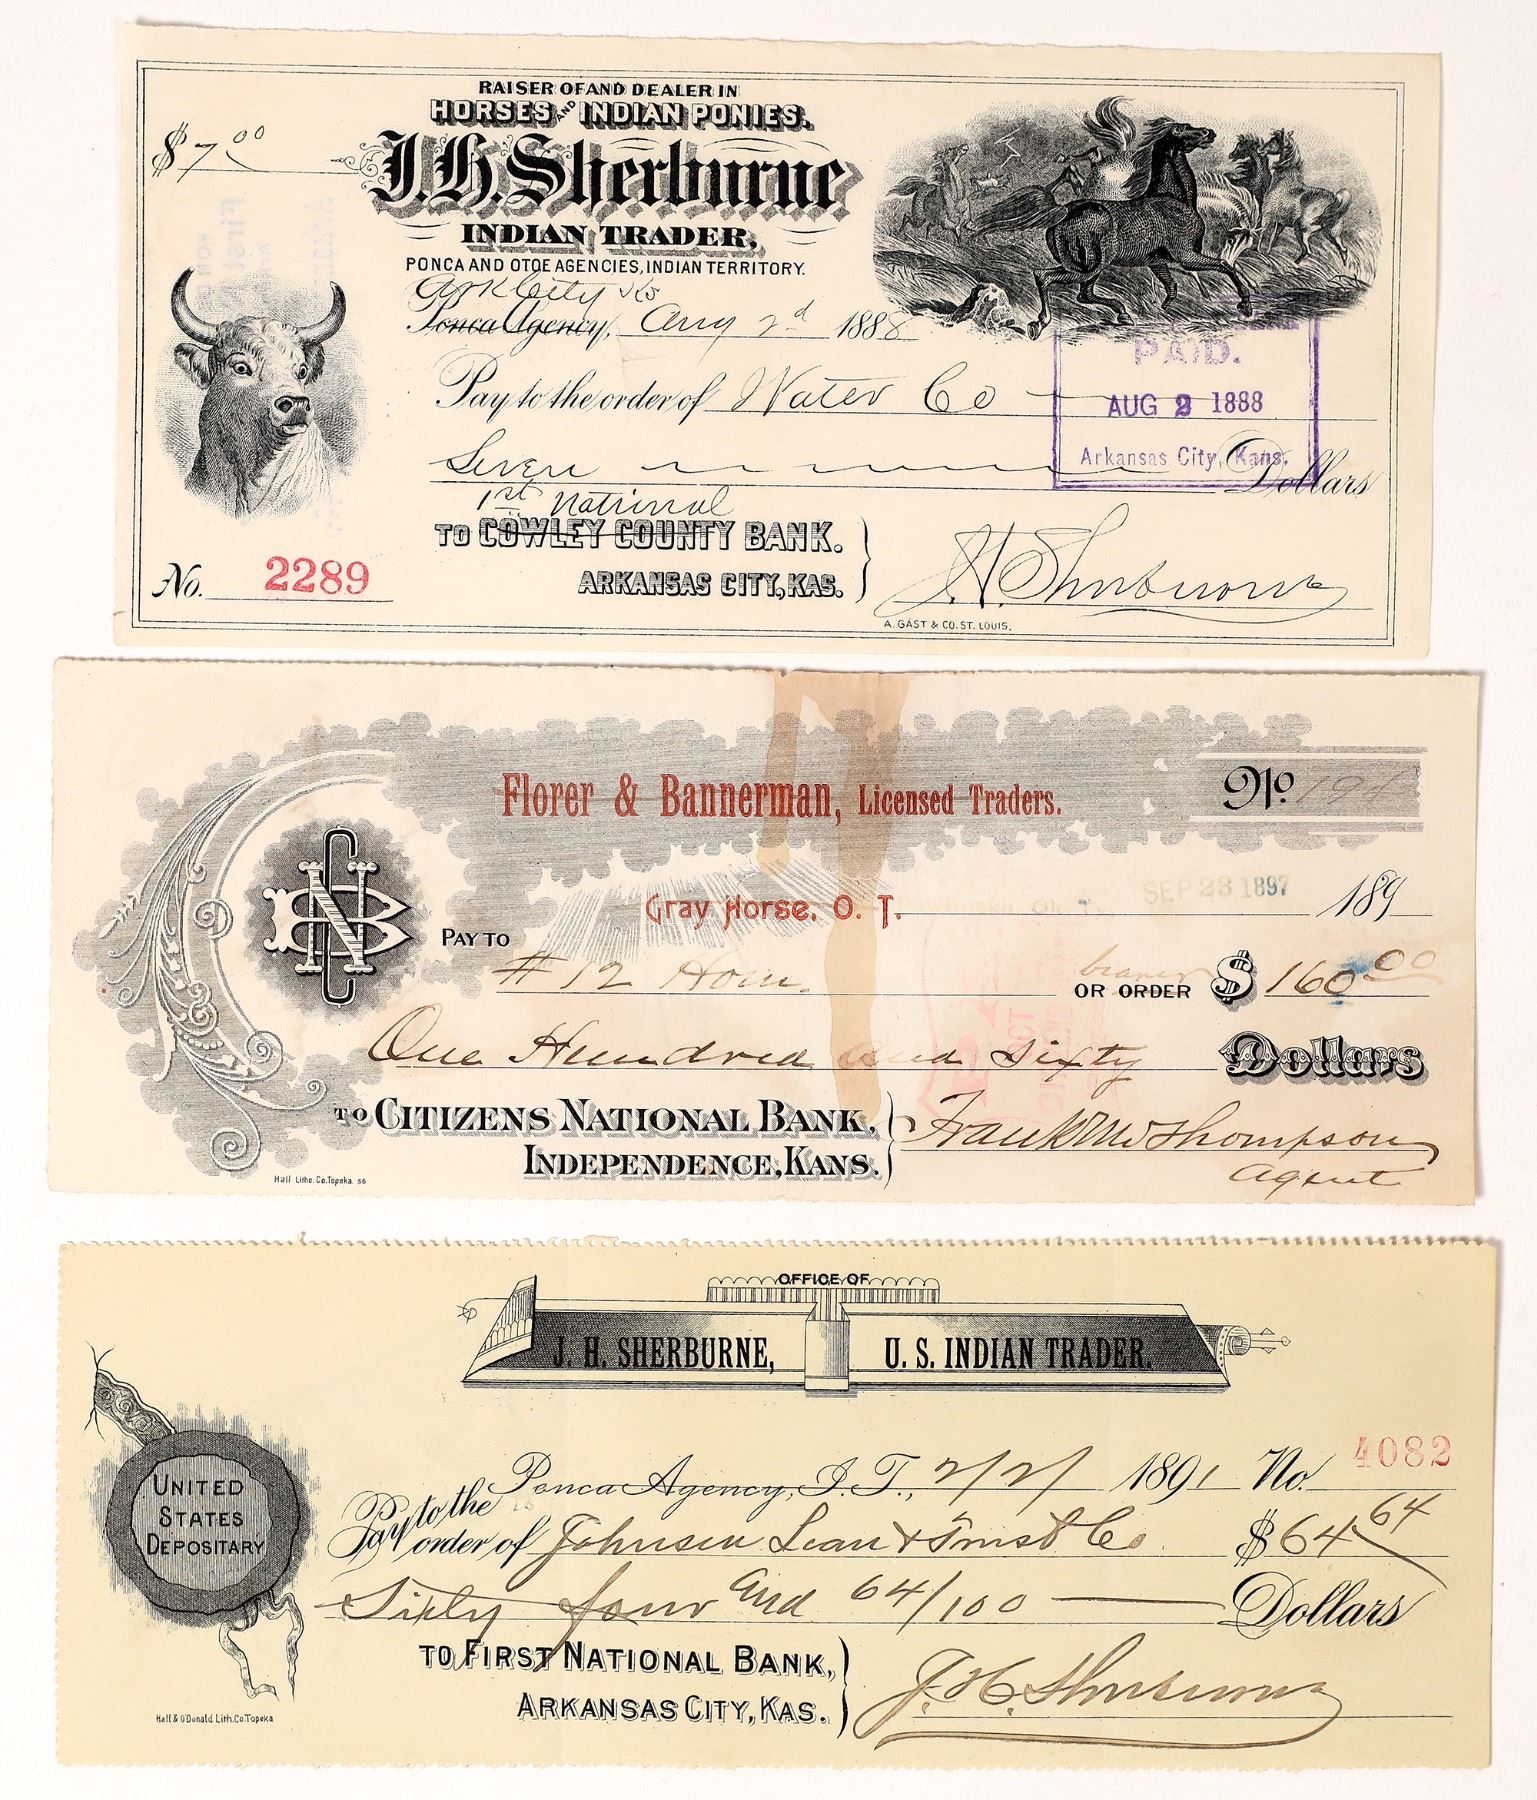 RAISER OF AND DEALER IN
HORSES AND INDIAN PONIES.
$ 7 00
J.H. Sherburne
INDIAN TRADER,
PONCA AND OTOE AGENCIES, INDIAN TERRITORY.
Ark City Ks
Ponca Agency, Aug 2d 1888
PAID.
AUG 2 1888
Arkansas City, Kans.
Pay to the order of Water Co
Seven Dollars
1st National
TO COWLEY COUNTY BANK.
ARKANSAS CITY, KAS.
J.H. Sherburne
No. 2289
A. GAST & CO. ST. LOUIS.
Florer & Bannerman, Licensed Traders.
No
Gray Horse, O. T. SEP 23 1897 189
CNB
PAY TO #12 Hom. bearer OR ORDER $ 160 00
One Hundred and Sixty Dollars
TO CITIZENS NATIONAL BANK,
INDEPENDENCE, KANS.
Frank M Thompson
Agent
Hall Litho. Co. Topeka. 56
OFFICE OF
J. H. SHERBURNE, U. S. INDIAN TRADER.
4082
Ponca Agency, I. T., 2/2/ 1891 No.
UNITED
STATES
DEPOSITARY
Pay to the
order of Johnson Loan & Trust Co $ 64 64
Sixty four and 64/100 Dollars
TO FIRST NATIONAL BANK,
ARKANSAS CITY, KAS.
J. H. Sherburne
Hall & O'Donald Lith. Co. Topeka